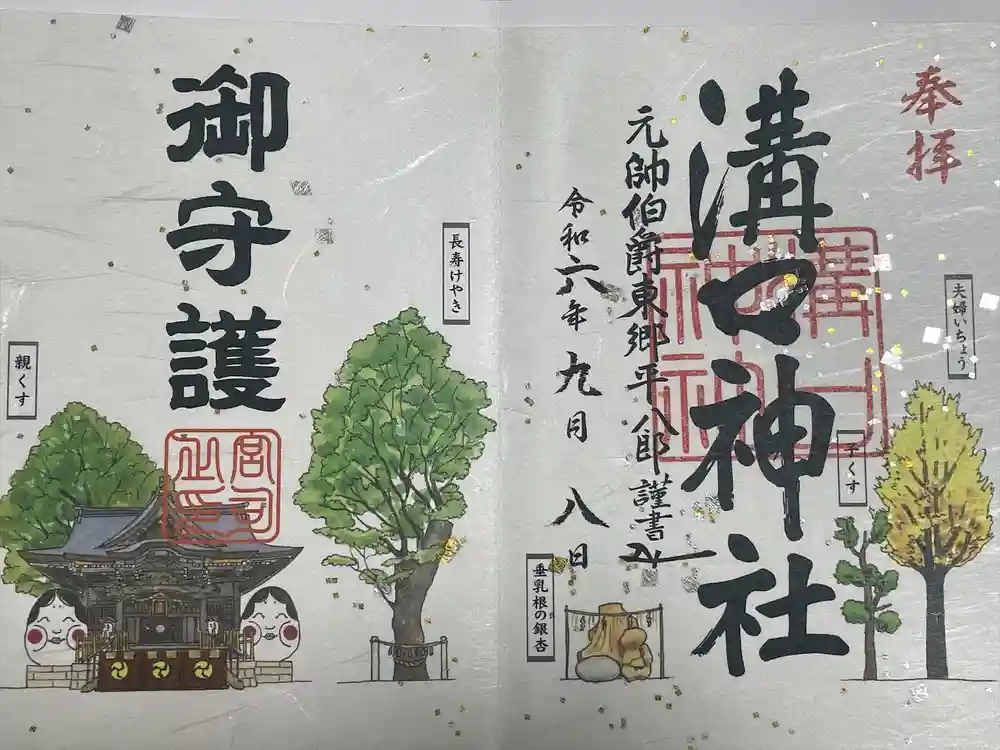 奉拝
溝口神社
溝口神社
元帥伯爵東郷平八郎謹書
令和六年九月八日
夫婦いちょう
子くす
垂乳根の銀杏
御守護
長寿けやき
親くす
宮司